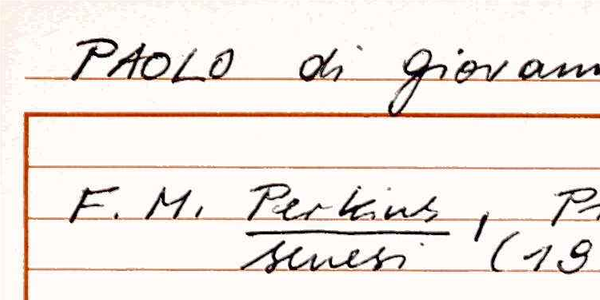 PAOLO di giovann
F. M. Perkins, Pr
senesi (19